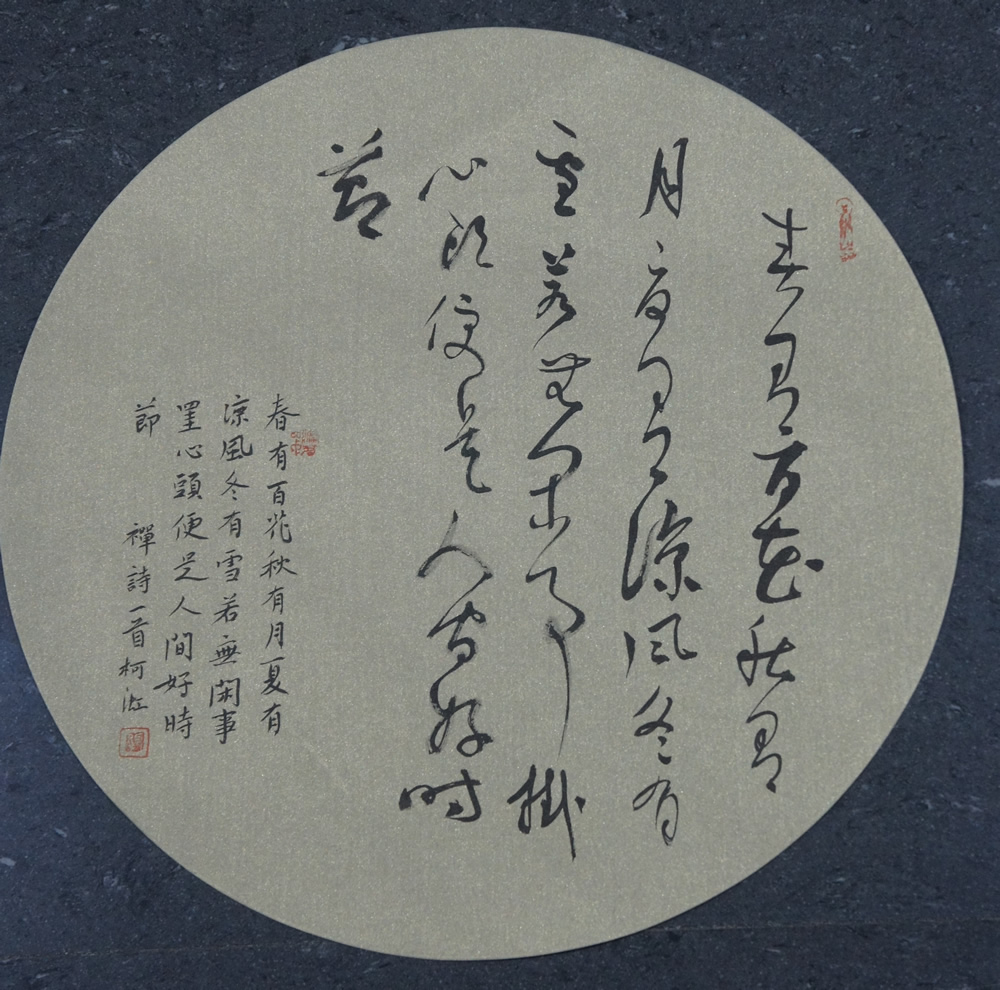 春有百花秋有
月夏有涼风冬有
雪若無闲事掛
心头便是人间好时
节
春有百花秋有月夏有
涼風冬有雪若無閑事
罣心頭便是人間好時
節 禪詩一首柯